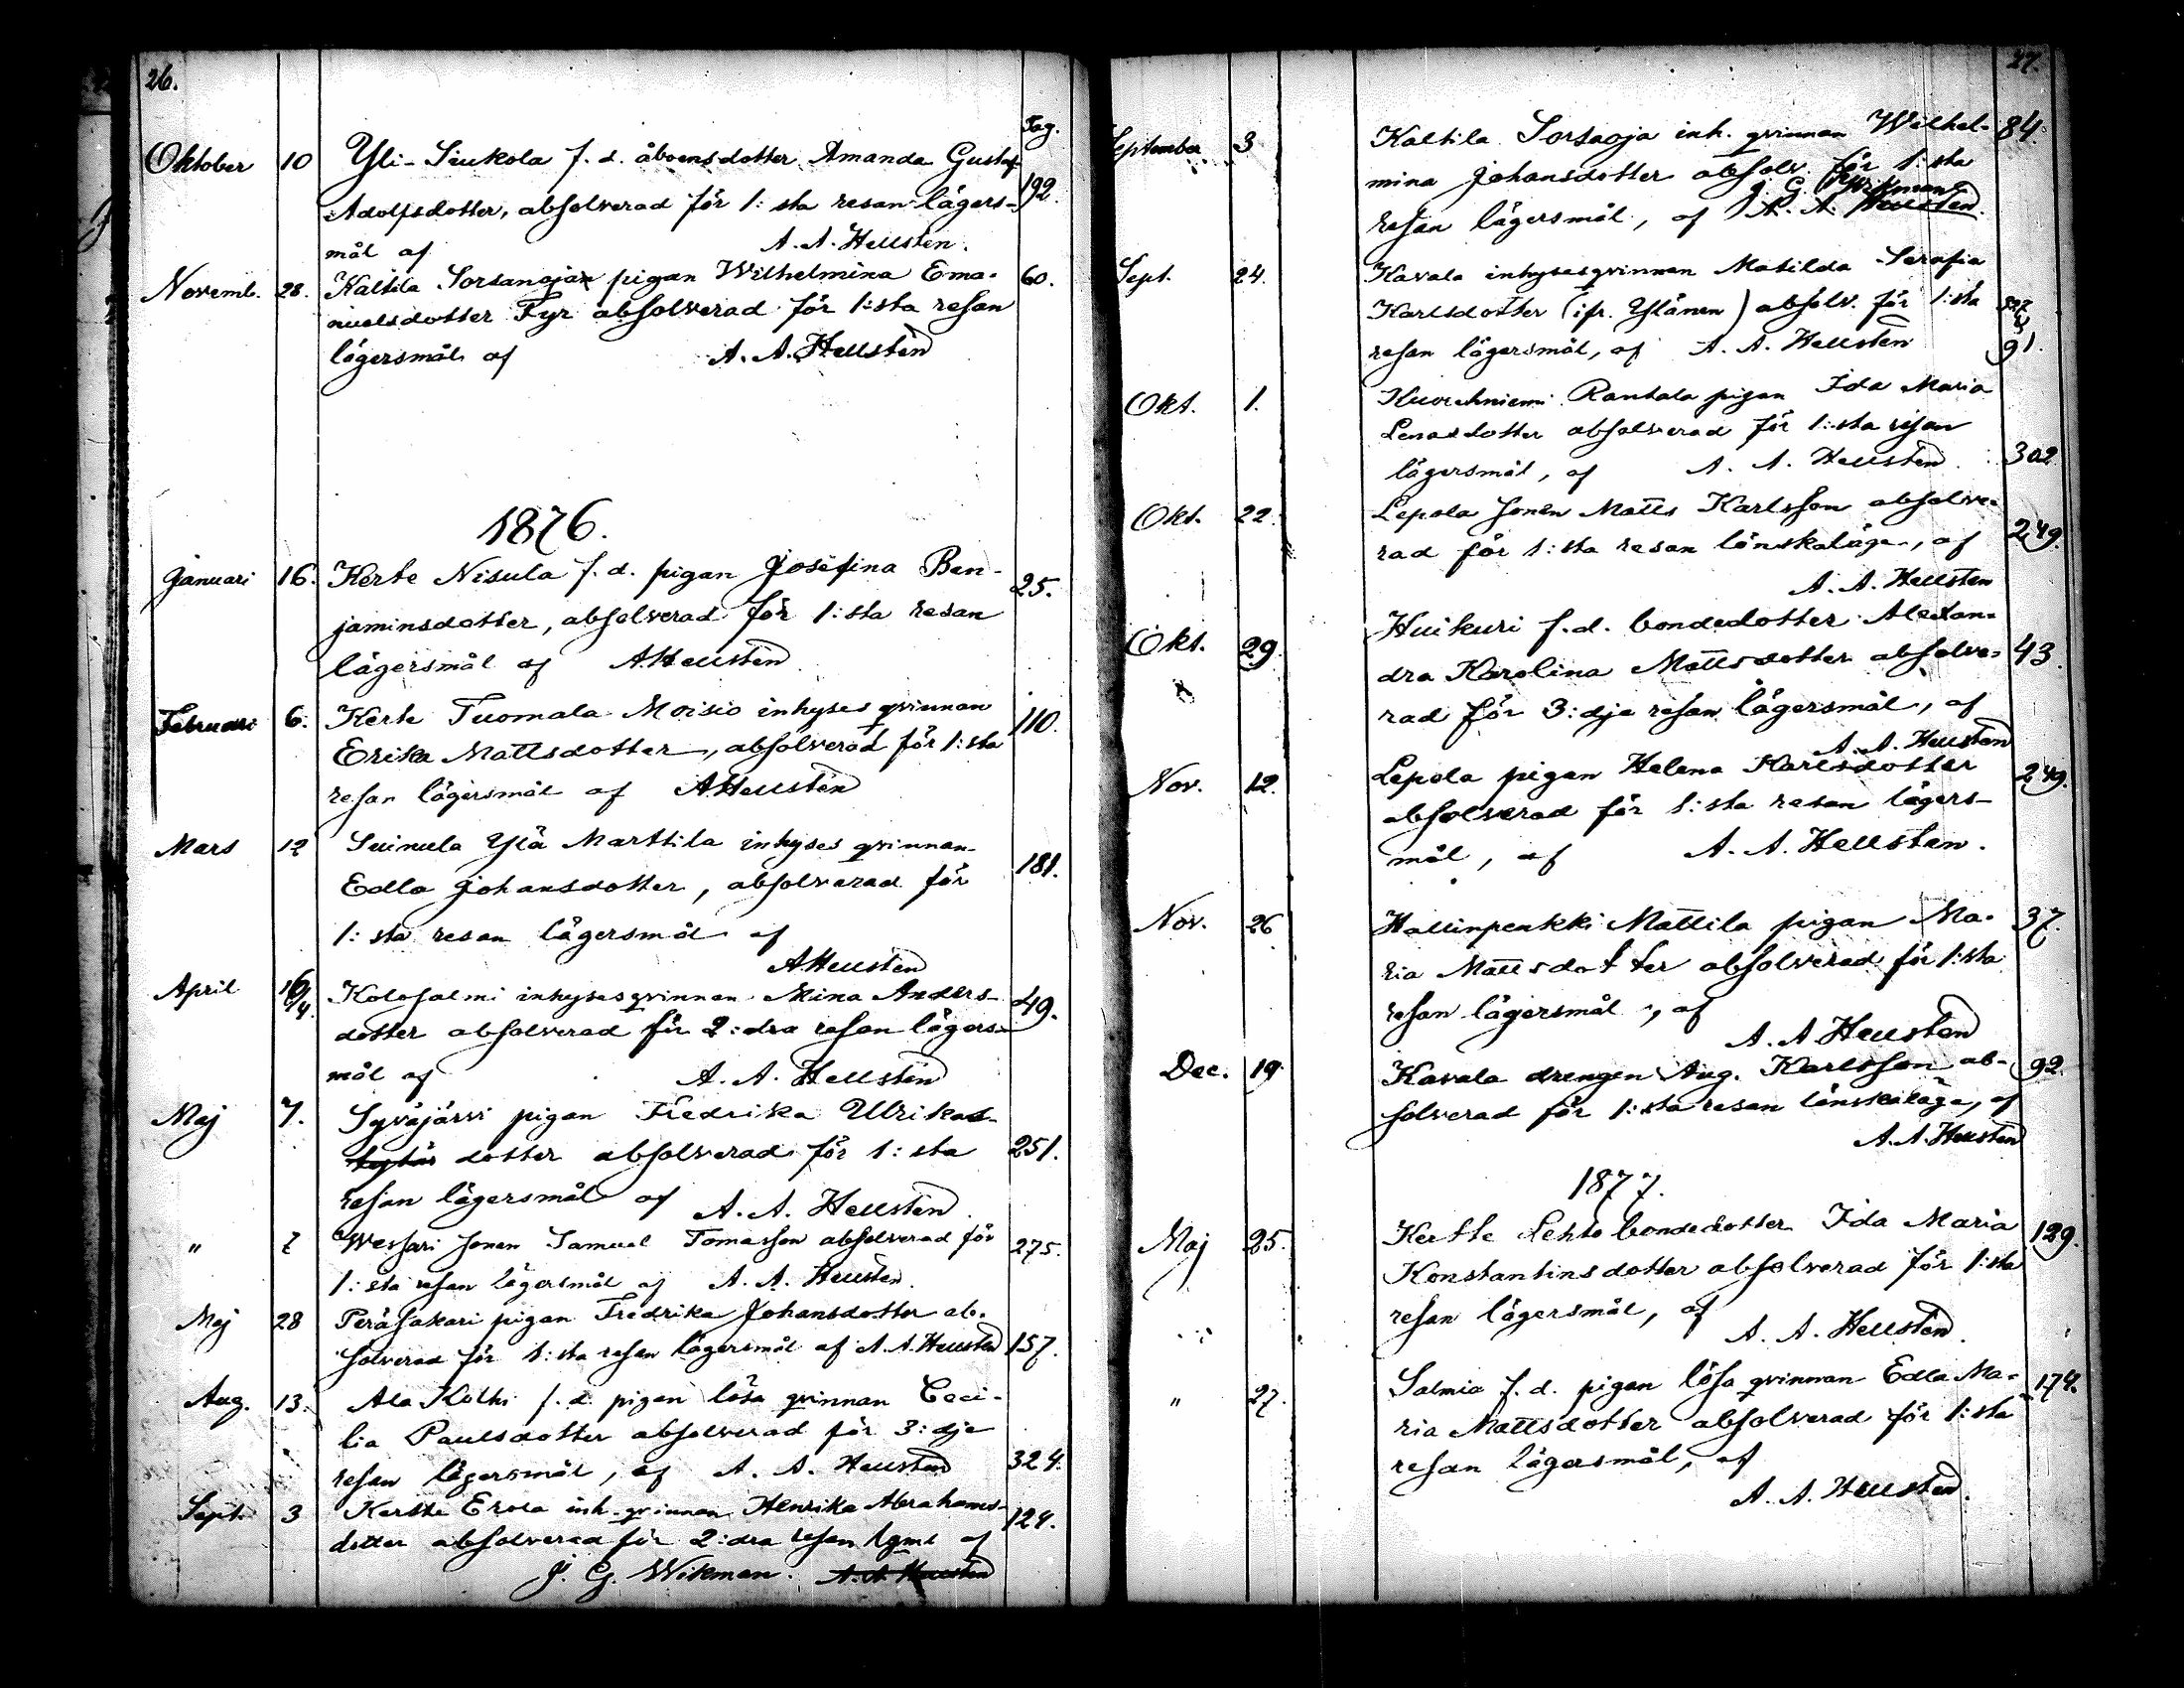 26.
Pag.
Oktober 10 Yli-Seukola f. d. åboensdotter Amanda Gustaf
Adolfsdotter, absolverad för 1:sta resan lägers- 192.
mål af A. A. Hellsten.
Novemb. 28. Kaltila Sorsanojan pigan Wilhelmina Ema- 60.
nuelsdotter Fyr absolverad för 1:sta resan
lägersmål af A. A. Hellsten
1876.
Januari 16. Kerte Nisula f. d. pigan Josefina Ben- 25.
jaminsdotter, absolverad för 1:sta resan
lägersmål af AHellsten
Februari 6. Kerte Tuomala Moisio inhyses qvinnan 110.
Erika Mattsdotter, absolverad för 1:sta
resan lägersmål af AHellsten
Mars 12 Suinula Ylä Marttila inhyses qvinnan
Edla Johansdotter, absolverad för 181.
1:sta resan lägersmål af
AHellsten
April 16/4. Kolosalmi inhysesqvinnan Mina Anders- 49.
dotter absolverad för 2:dra resan lägers-
mål af A. A. Hellsten
Maj 7. Syväjärvi pigan Fredrika Ulrikas-
dotter absolverad för 1:sta 251.
resan lägersmål af A. A. Hellsten
" 7 Wessari sonen Samuel Tomasson absolverad för 275.
1:sta resan lägersmål af A. A. Hellsten.
Maj 28 Peräsakari pigan Fredrika Johansdotter ab-
solverad för 1:sta resan lägersmål af A. A. Hellsten 157.
Aug. 13. Ala Kolhi f. d. pigan lösa qvinnan Ceci-
lia Paulsdotter absolverad för 3:dje
resan lägersmål, af A. A. Hellsten 324.
Sept. 3 Kertte Erola inh. qvinnan Henrika Abrahams- 124.
dotter absolverad för 2:dra resan lgml af
J. G. Wikman. A. A. Hellsten
27.
September 3 Kaltila Sorsaoja inh. qvinnan Wilhel- 84.
mina Johansdotter absolv. för 1:sta
J. G. Wikman
resan lägersmål, af A. A. Hellsten.
Sept. 24. Kavala inhysesqvinnan Matilda Serafia
Karlsdotter (ifr. Ylänen) absolv. för 1:sta
resan lägersmål, af A. A. Hellsten 91.
Okt. 1. Kuorehniemi Rantala pigan Ida Maria
Lenasdotter absolverad för 1:sta resan
lägersmål, af A. A. Hellsten 302
Okt. 22. Lepola sonen Matts Karlsson absolve-
rad för 1:sta resan lönskaläge, af 249.
A. A. Hellsten
Okt. 29. Huikuri f. d. bondedotter Alexan-
dra Karolina Mattsdotter absolve- 43.
rad för 3:dje resan lägersmål, af
A. A. Hellsten
Nov. 12. Lepola pigan Helena Karlsdotter 249.
absolverad för 1:sta resan lägers-
mål, af A. A. Hellsten.
Nov. 26 Hallinpenkki Mattila pigan Ma- 37.
ria Mattsdotter absolverad för 1:sta
resan lägersmål, af
A. A. Hellsten
Dec. 19 Kavala drengen Aug. Karlsson ab- 92.
solverad för 1:sta resan lönskaläge, af
A. A. Hellsten
1877.
Maj 25. Kertte Lehto bondedotter Ida Maria 129.
Konstantinsdotter absolverad för 1:sta
resan lägersmål, af
A. A. Hellsten.
" 27. Salmia f. d. pigan lösa qvinnan Edla Ma- 174.
ria Mattsdotter absolverad för 1:sta
resan lägersmål, af
A. A. Hellsten.